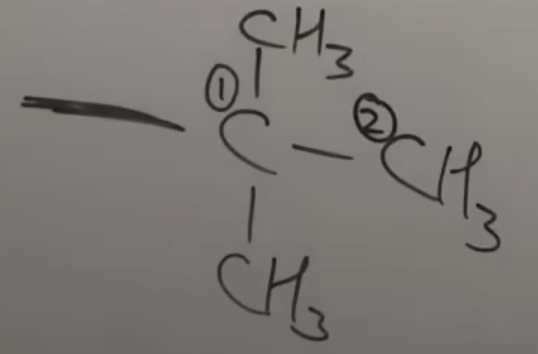 CH₃
①
— C — ② CH₃
CH₃